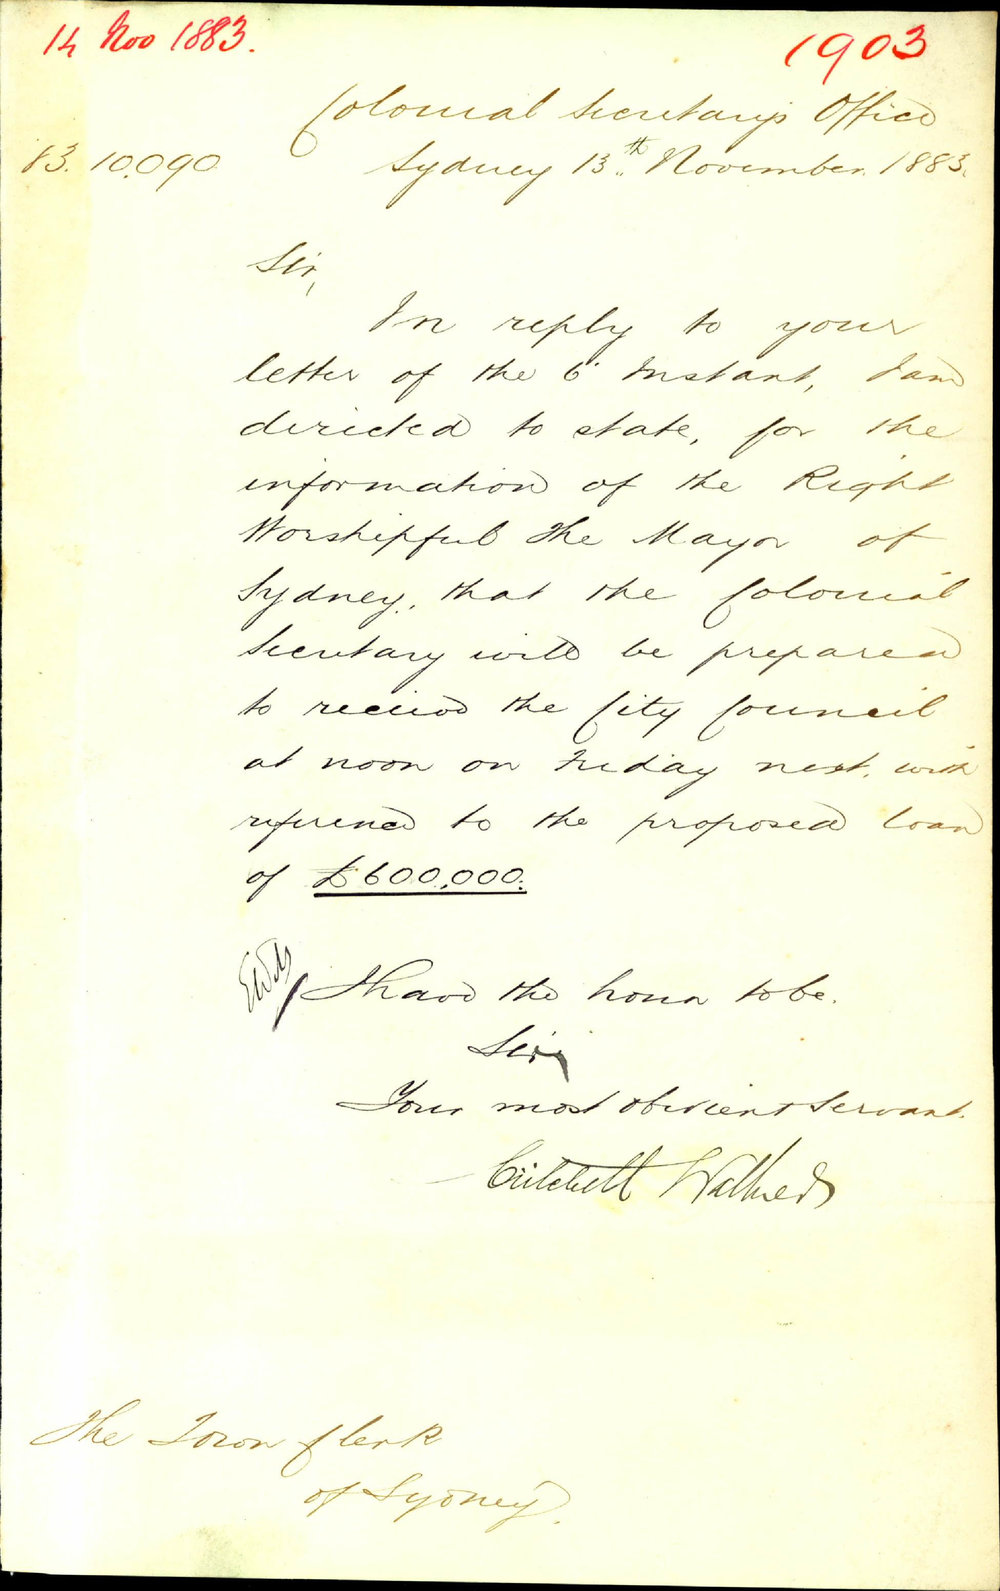 14 Nov 1883.
1903
Colonial Secretary's Office
83. 10.090
Sydney 13th November 1883.
Sir,
In reply to your
letter of the 6th Instant, I am
directed to state, for the
information of the Right
Worshipful The Mayor of
Sydney, that the Colonial
Secretary will be prepared
to receive the City Council
at noon on Friday next, with
reference to the proposed loan
of £600,000.
I have the honor to be.
Sir,
Your most obedient Servant.
Critchett Walker
The Town Clerk
of Sydney.